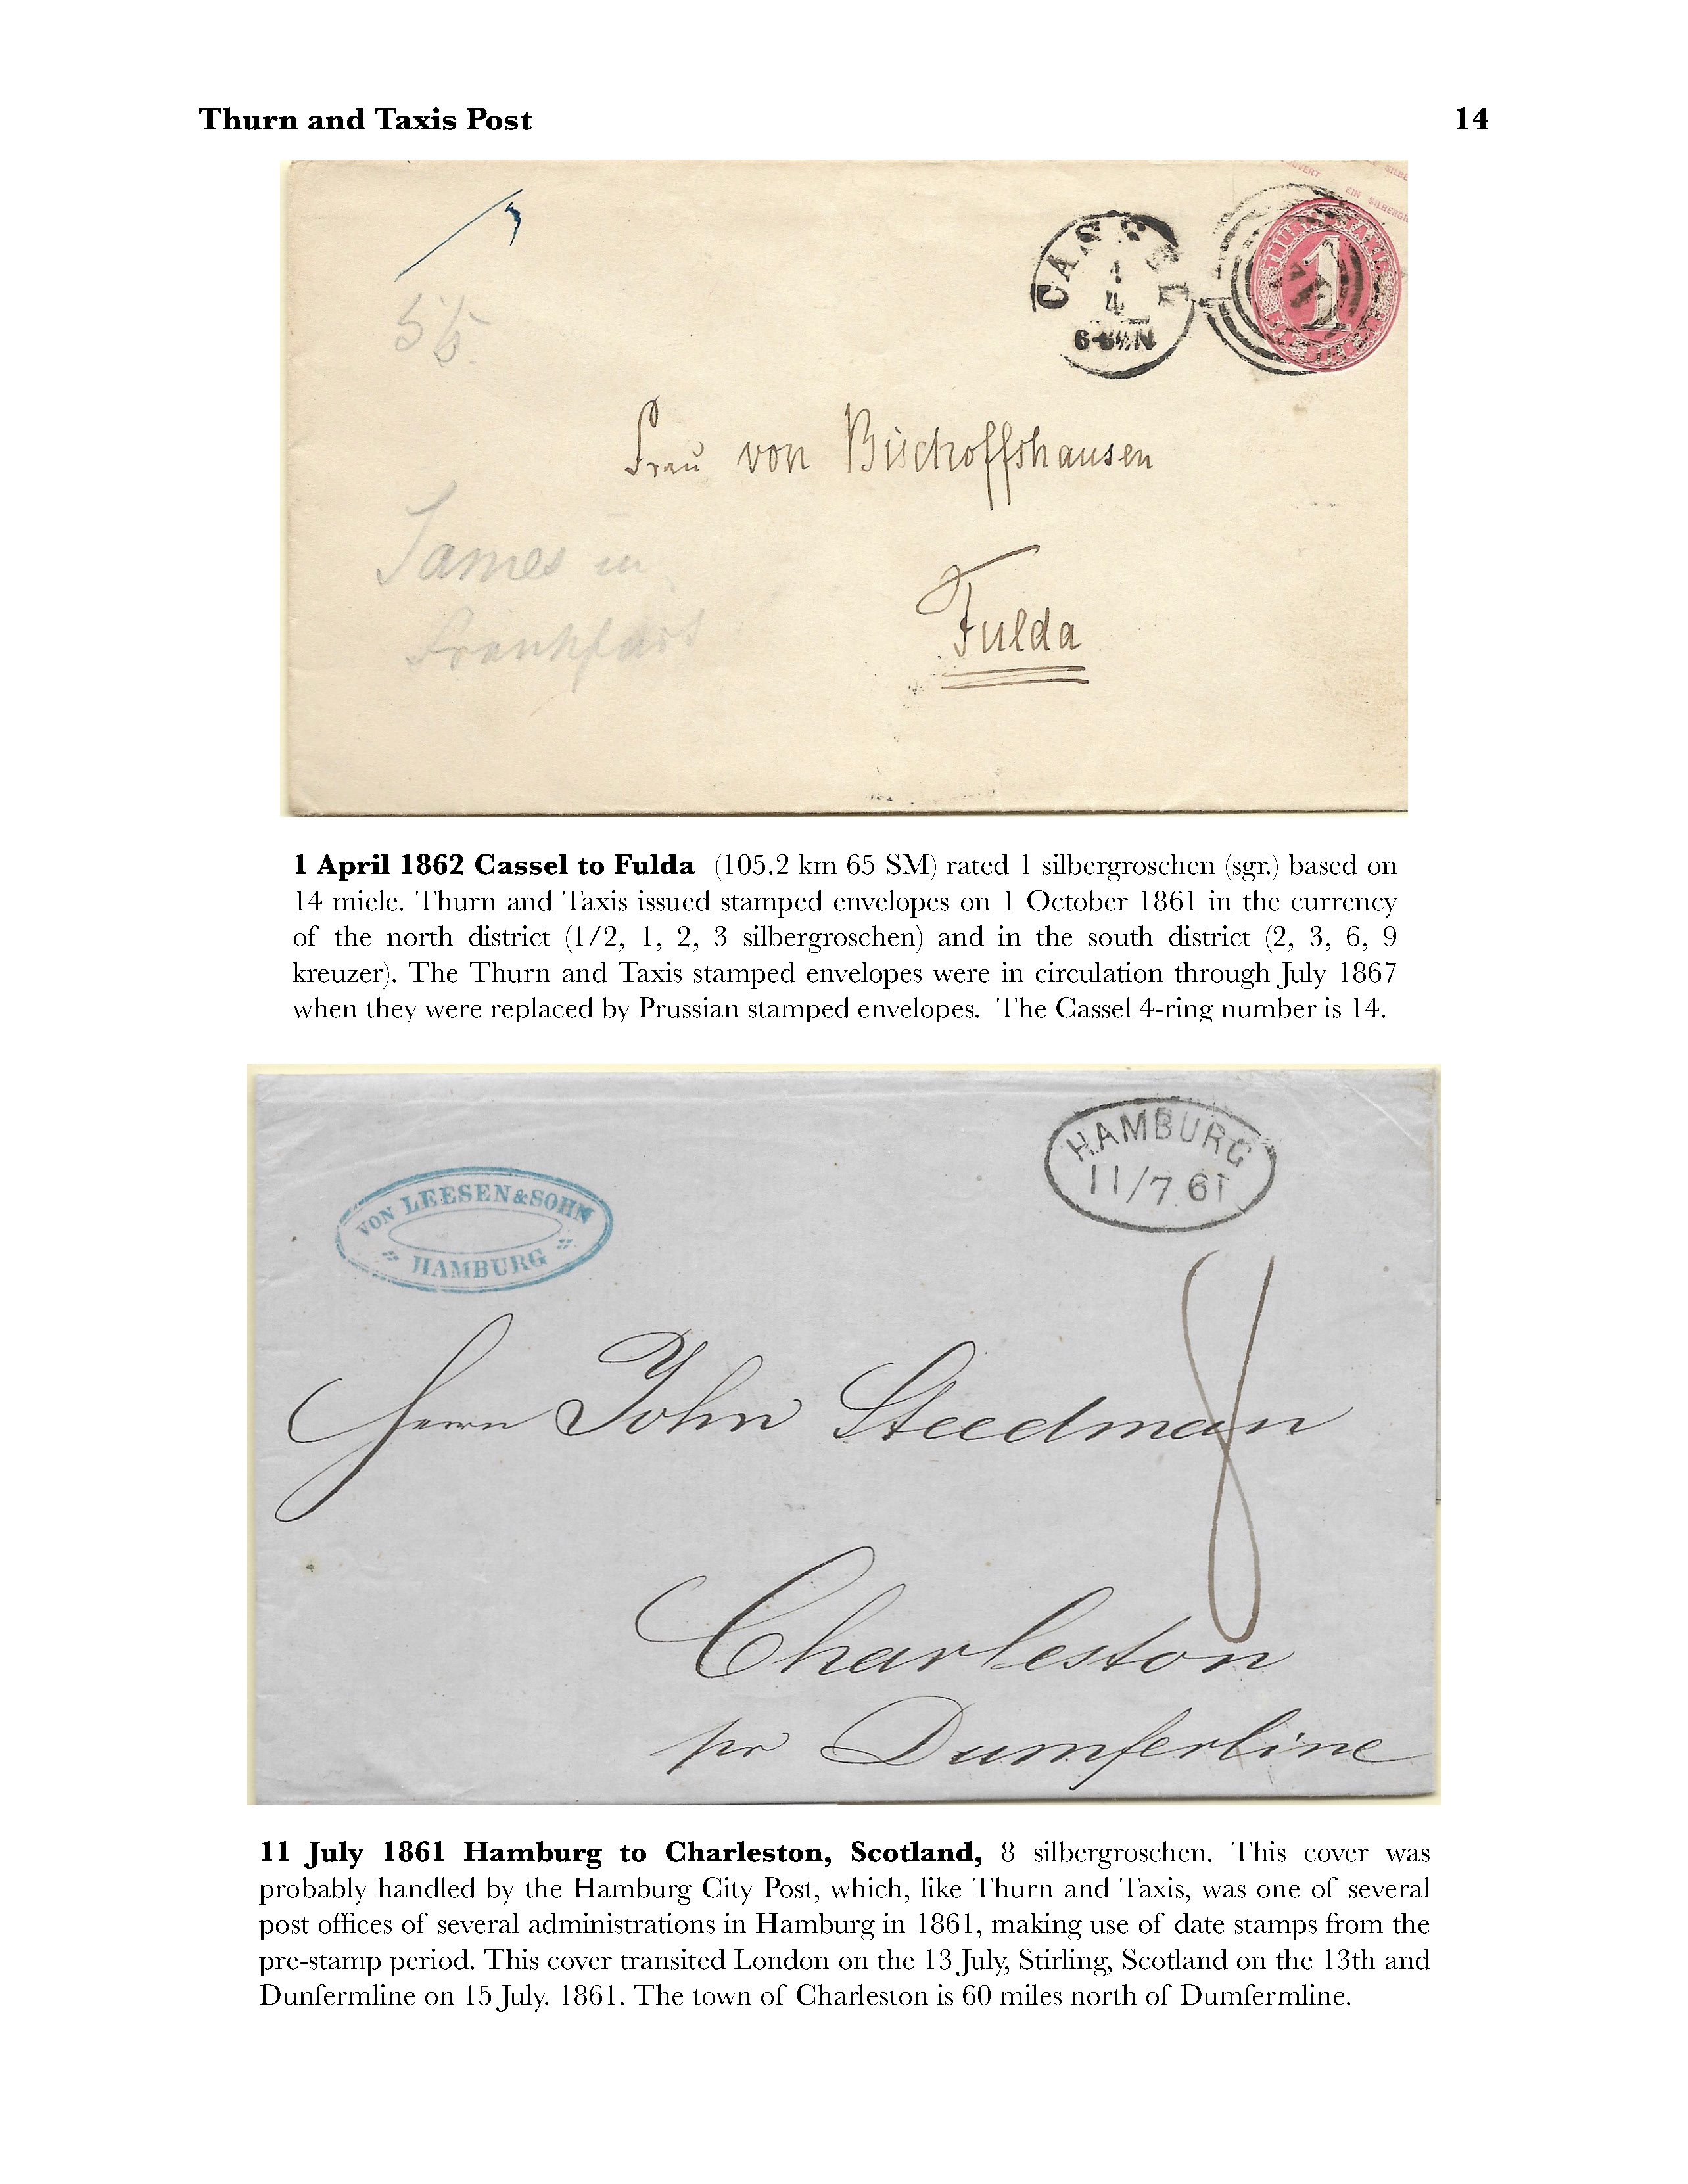 Thurn and Taxis Post 14
COUVERT
EIN SILBERGR
CASSEL
1
4
1
Frau von Bischoffshausen
James in
Frankfurt
Fulda
1 April 1862 Cassel to Fulda (105.2 km 65 SM) rated 1 silbergroschen (sgr.) based on
14 miele. Thurn and Taxis issued stamped envelopes on 1 October 1861 in the currency
of the north district (1/2, 1, 2, 3 silbergroschen) and in the south district (2, 3, 6, 9
kreuzer). The Thurn and Taxis stamped envelopes were in circulation through July 1867
when they were replaced by Prussian stamped envelopes. The Cassel 4-ring number is 14.
HAMBURG
11/7.61
VON LEESEN&SOHN
HAMBURG
8
Herrn John Steedman
Charleston
pr Dumferline
11 July 1861 Hamburg to Charleston, Scotland, 8 silbergroschen. This cover was
probably handled by the Hamburg City Post, which, like Thurn and Taxis, was one of several
post offices of several administrations in Hamburg in 1861, making use of date stamps from the
pre-stamp period. This cover transited London on the 13 July, Stirling, Scotland on the 13th and
Dunfermline on 15 July. 1861. The town of Charleston is 60 miles north of Dumfermline.